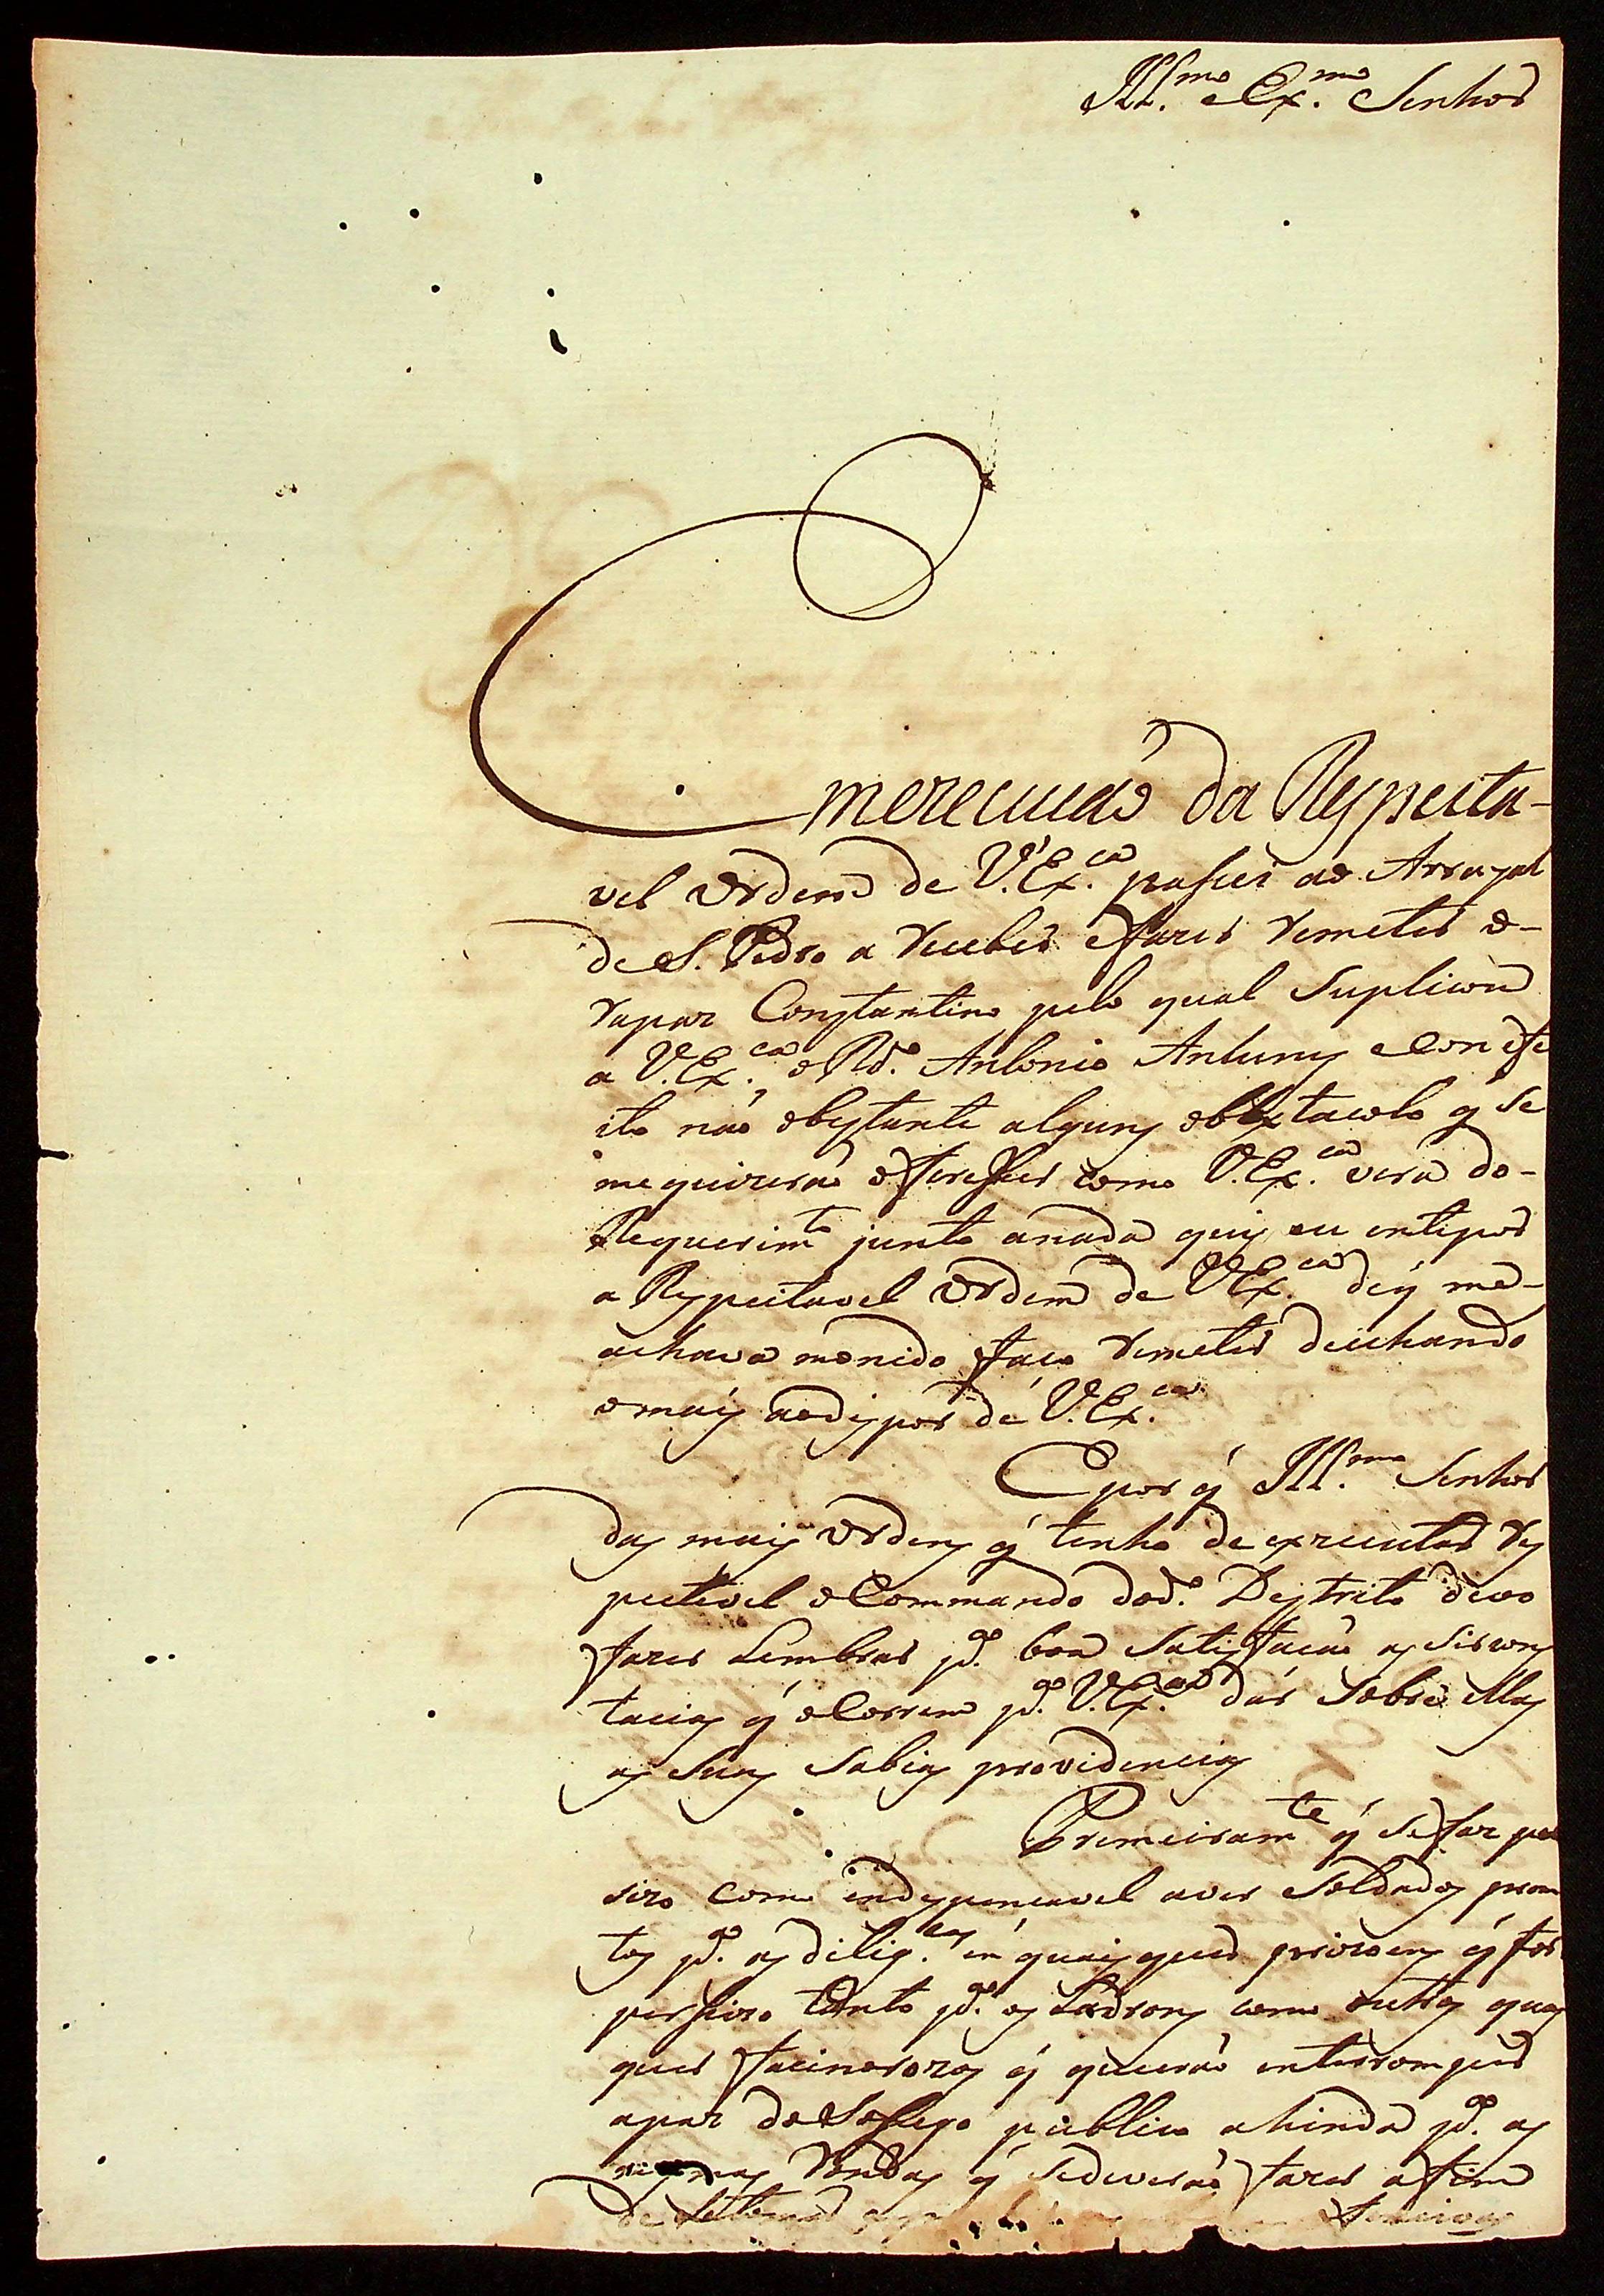 Ill.mo e Ex.mo Senhor
Emerecucaõ da Respeita-
vel Ordem de V. Ex.ca pasei ao Arrayal
de S. Pedro a recebêr efazer remeter o-
rapaz Constantino pelo qual Suplicou
a V. Ex.ca, o Rd.o Antonio Antunes e Con efe
ito naõ obestante alguns obstacolo q̃ Se
me quizeraõ oferesser como V. Ex.ca verá do-
Requerim.to junto anada quis eu entepor
a Respeitavel Ordem de V Ex.ca de q̃ me-
achava monido, faco remeter deichando
omais aodispor de V. Ex.ca
E por q̃ Ill.mo Senhor
das mais Ordens q̃ tenho de exzecutar res
petivel o Commando dod.o Destrito devo
fazer Lembrar p.a boa Satisfacaõ as Sircons
tacias q̃ oCorrem p.a V. Ex.ca dar Sobre ellas
as Suas Sabias providencias
Premeiram.te q̃ Se faz per
sizo como indespencavel aver Soldados prom
tos p.a as dilig.cas en quais quer prizoens q̃ for
persizo tanto p.a os Ladrons como outros quas
quer facinorozos q̃ queiraõ enterromper
apaz do Sosego publico ahinda p.a as
mesmas Rondas q̃ Sedeveraõ fazer afim
de